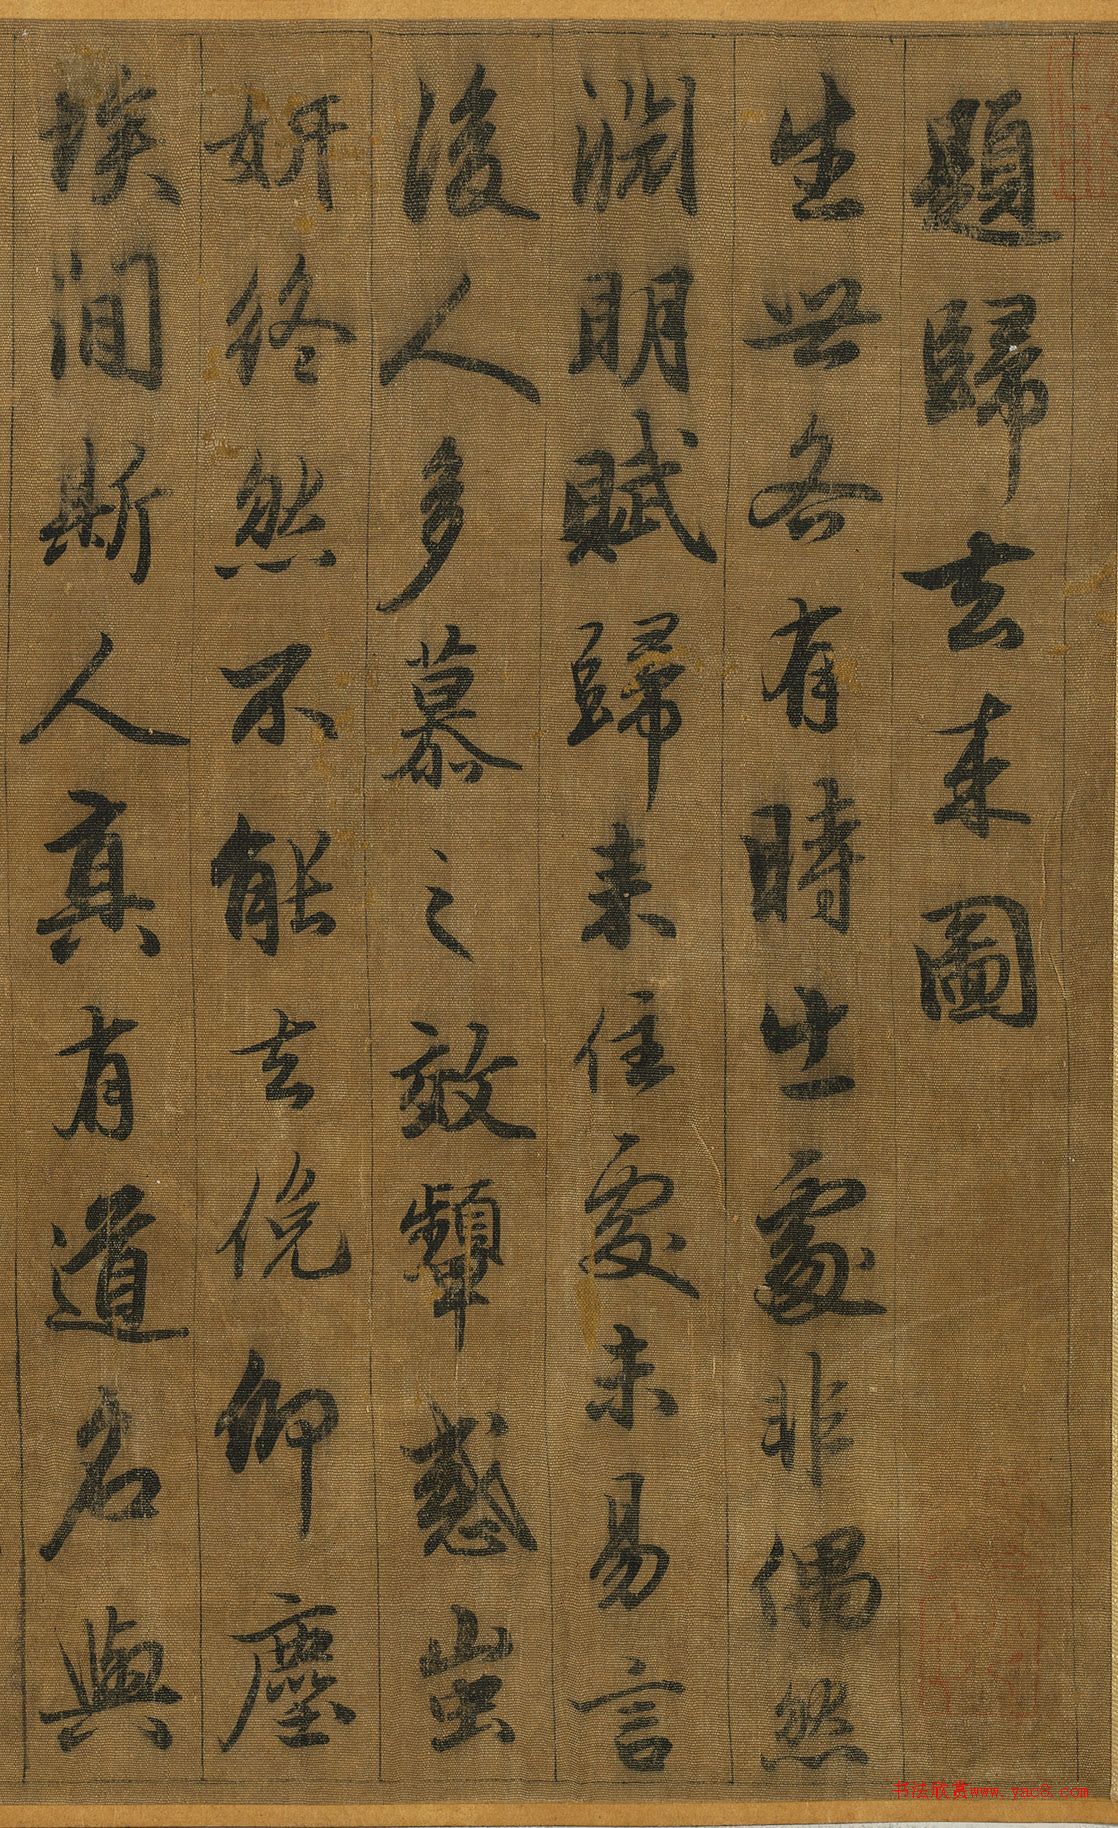 題歸去来圖
生世各有時出處非偶然
淵明賦歸来佳處未易言
後人多慕之效顰惑蚩
妍終然不能去俛仰塵
埃間斯人真有道名與
书法欣赏www.yac8.com